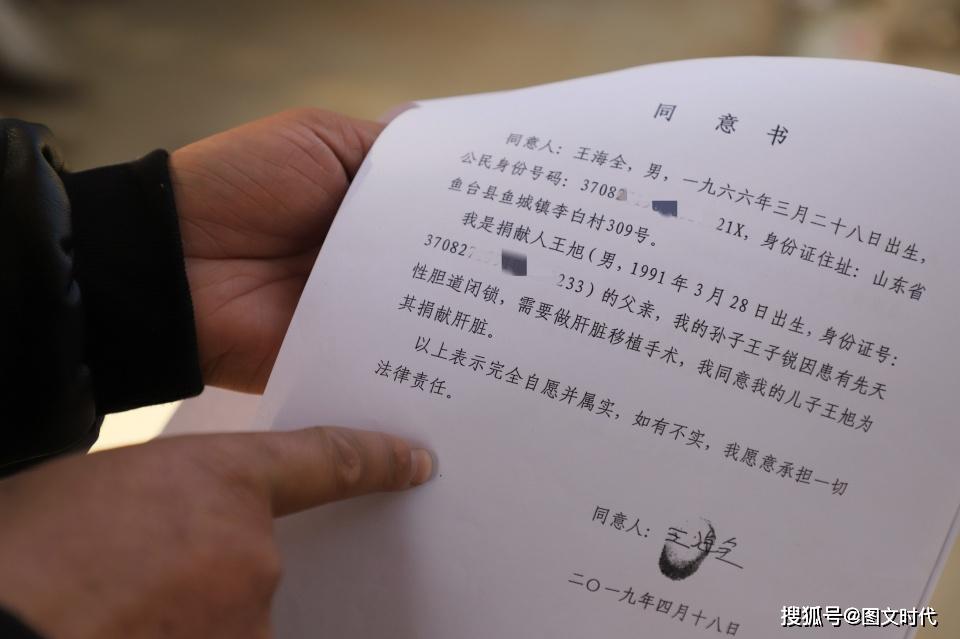 同意书
同意人：王海全，男，一九六六年三月二十八日出生，
公民身份号码：3708 21X，身份证住址：山东省
鱼台县鱼城镇李白村309号。
我是捐献人王旭（男，1991年3月28日出生，身份证号：
37082 233）的父亲，我的孙子王子锐因患有先天
性胆道闭锁，需要做肝脏移植手术，我同意我的儿子王旭为
其捐献肝脏。
以上表示完全自愿并属实，如有不实，我愿意承担一切
法律责任。
同意人：王海全
二〇一九年四月十八日
搜狐号@图文时代